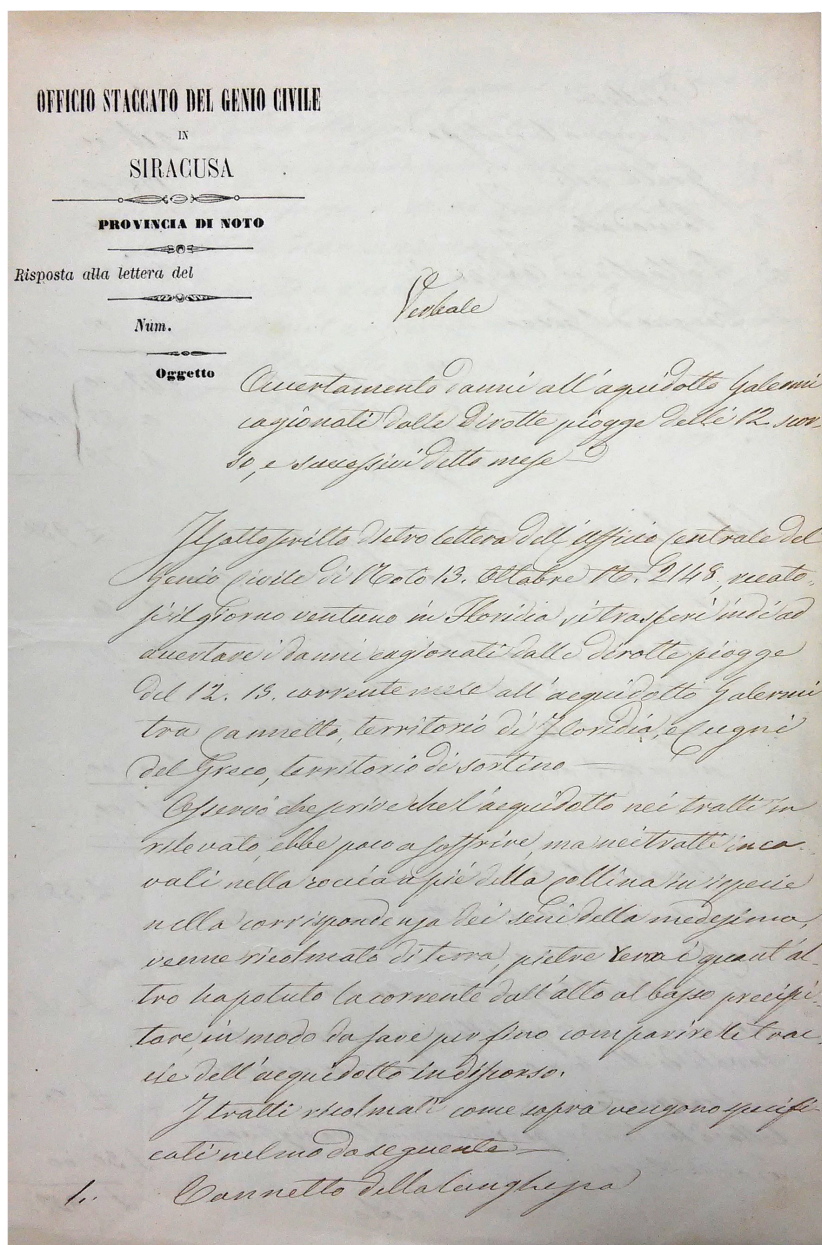 OFFICIO STACCATO DEL GENIO CIVILE
IN
SIRACUSA
PROVINCIA DI NOTO
Risposta alla lettera del
Núm.
Oggetto
Verbale
Accertamento danni all'aquidotto Galermi
cagionati dalle dirotte piogge delli 12 scor-
so, e successivi detto mese
Il sottoscritto dietro lettera dell'Officio Centrale del
Genio Civile di Noto 13. Ottobre N. 2148, recato-
si il giorno ventuno in Floridia, si trasferì indi ad
accertare i danni cagionati dalle dirotte piogge
del 12. 13. corrente mese all'acquidotto Galermi
tra Cannetto, territorio di Floridia, e Cugni
del Greco, territorio di Sortino
Osservò che l'acquidotto nei tratti in
rilevato, ebbe poco a soffrire, ma nei tratti inca-
vati nella roccia a piè della collina in ispecie
nella corrispondenza dei seni della medesima,
venne ricolmato di terra, pietre e quant'al-
tro ha potuto la corrente dall'alto al basso precipi-
tare, in modo da fare per fino comparire le trac-
cie dell'acquidotto
I tratti ricolmati come sopra vengono specifi-
cati nel modo seguente
1. Cannetto della